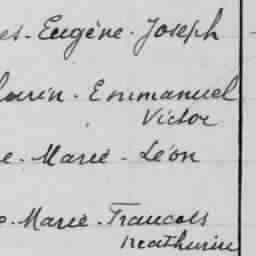 es - Eugène - Joseph
larin - Emmanuel
Victor
e - Marie - Léon
e - Marie - Francois
Mathurin